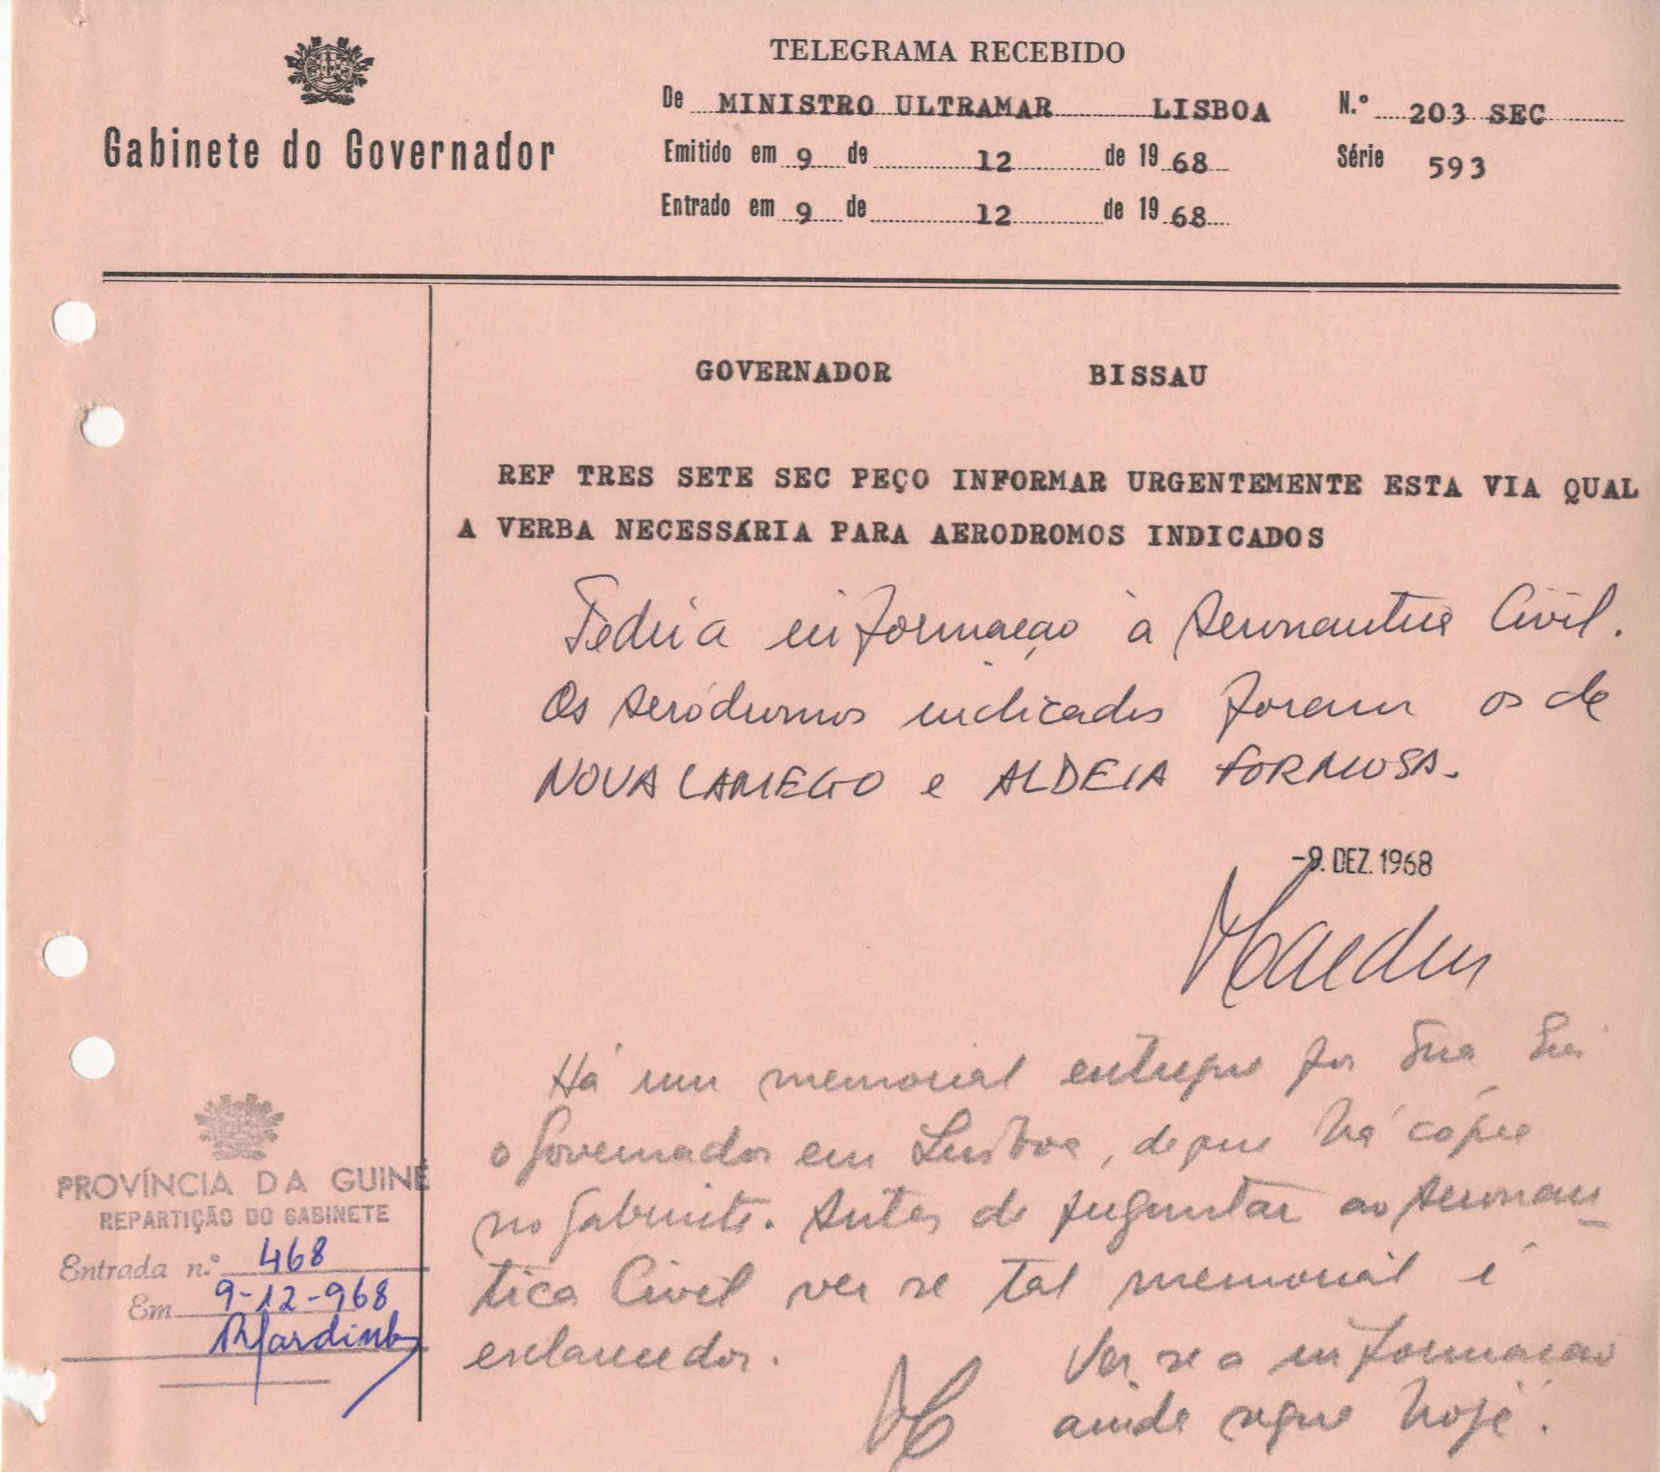 Gabinete do Governador
TELEGRAMA RECEBIDO
De MINISTRO ULTRAMAR LISBOA N.º 203 SEC
Emitido em 9 de 12 de 1968 Série 593
Entrado em 9 de 12 de 1968
GOVERNADOR BISSAU
REF TRES SETE SEC PEÇO INFORMAR URGENTEMENTE ESTA VIA QUAL
A VERBA NECESSÁRIA PARA AERODROMOS INDICADOS
Pedir a informação à Aeronautica Civil.
Os Aeródromos indicados foram os de
NOVA LAMEGO e ALDEIA FORMOSA.
-9. DEZ. 1968
Há um memorial entregue por Sua Exª
o Governador em Lisboa, de que há cópia
no Gabinete. Antes de perguntar ao Aeronau-
tica Civil ver se tal memorial é
esclarecedor.
Ver se a informação
ainda segue hoje.
PROVÍNCIA DA GUINÉ
REPARTIÇÃO DO GABINETE
Entrada n.º 468
Em 9-12-968